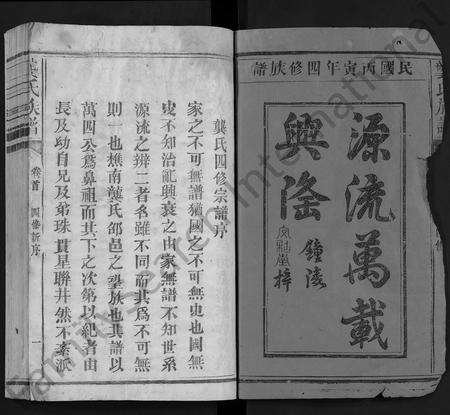 民國丙寅年四修族譜
源流萬載
興隆
鐘陵
梓
龔氏四修宗譜序
家之不可無譜猶國之不可無史也國無
史不知治亂興衰之由家無譜不知世系
源流之辨二者名雖不同而其爲不可無
則一也樵南龔氏邵邑之望族也其譜以
萬四公爲鼻祖而其下之次第以紀者由
長及幼自兄及弟珠貫星聯井然不紊派
龔氏族譜
卷首
四修新序
一